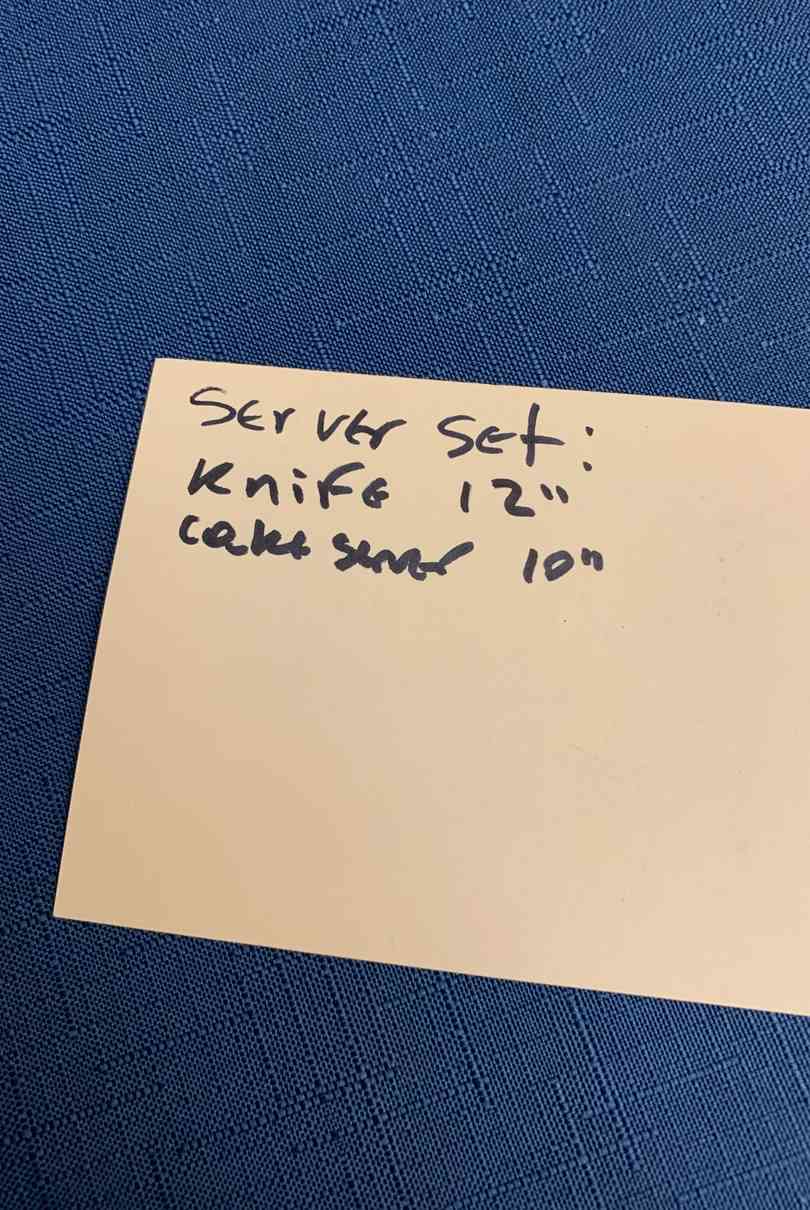 Server Set:
Knife 12"
Cake Server 10"